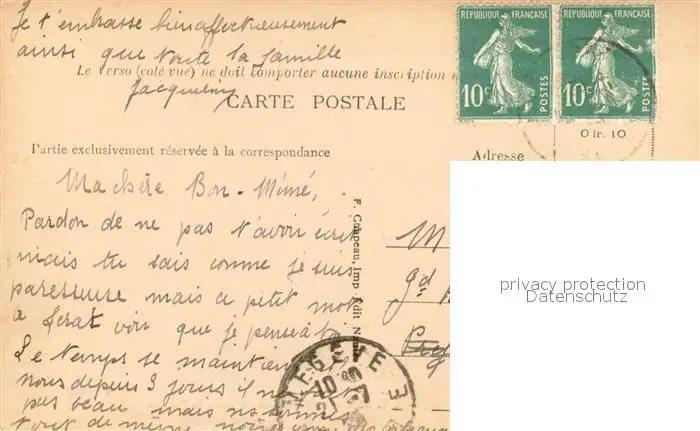 Je t'embrasse bien affectueusement
ainsi que toute la famille
Le Verso (coté vue) ne doit comporter aucune inscription
Jacqueline
CARTE POSTALE
REPUBLIQUE FRANÇAISE
10c POSTES
REPUBLIQUE FRANÇAISE
10c POSTES
0 fr. 10
Partie exclusivement réservée à la correspondance
Adresse
Ma chère Bon-Mémé,
Pardon de ne pas t'avoir écrit
mais tu sais comme je suis
paresseuse mais ce petit mot
te ferat voir que je pense à toi
Le temps se maintient
nous depuis 3 jours il n'est
pas beau mais nous sommes
tout de même
F. Chapeau, Imp. Edit
M
gd
MEGEVE
10
privacy protection
Datenschutz